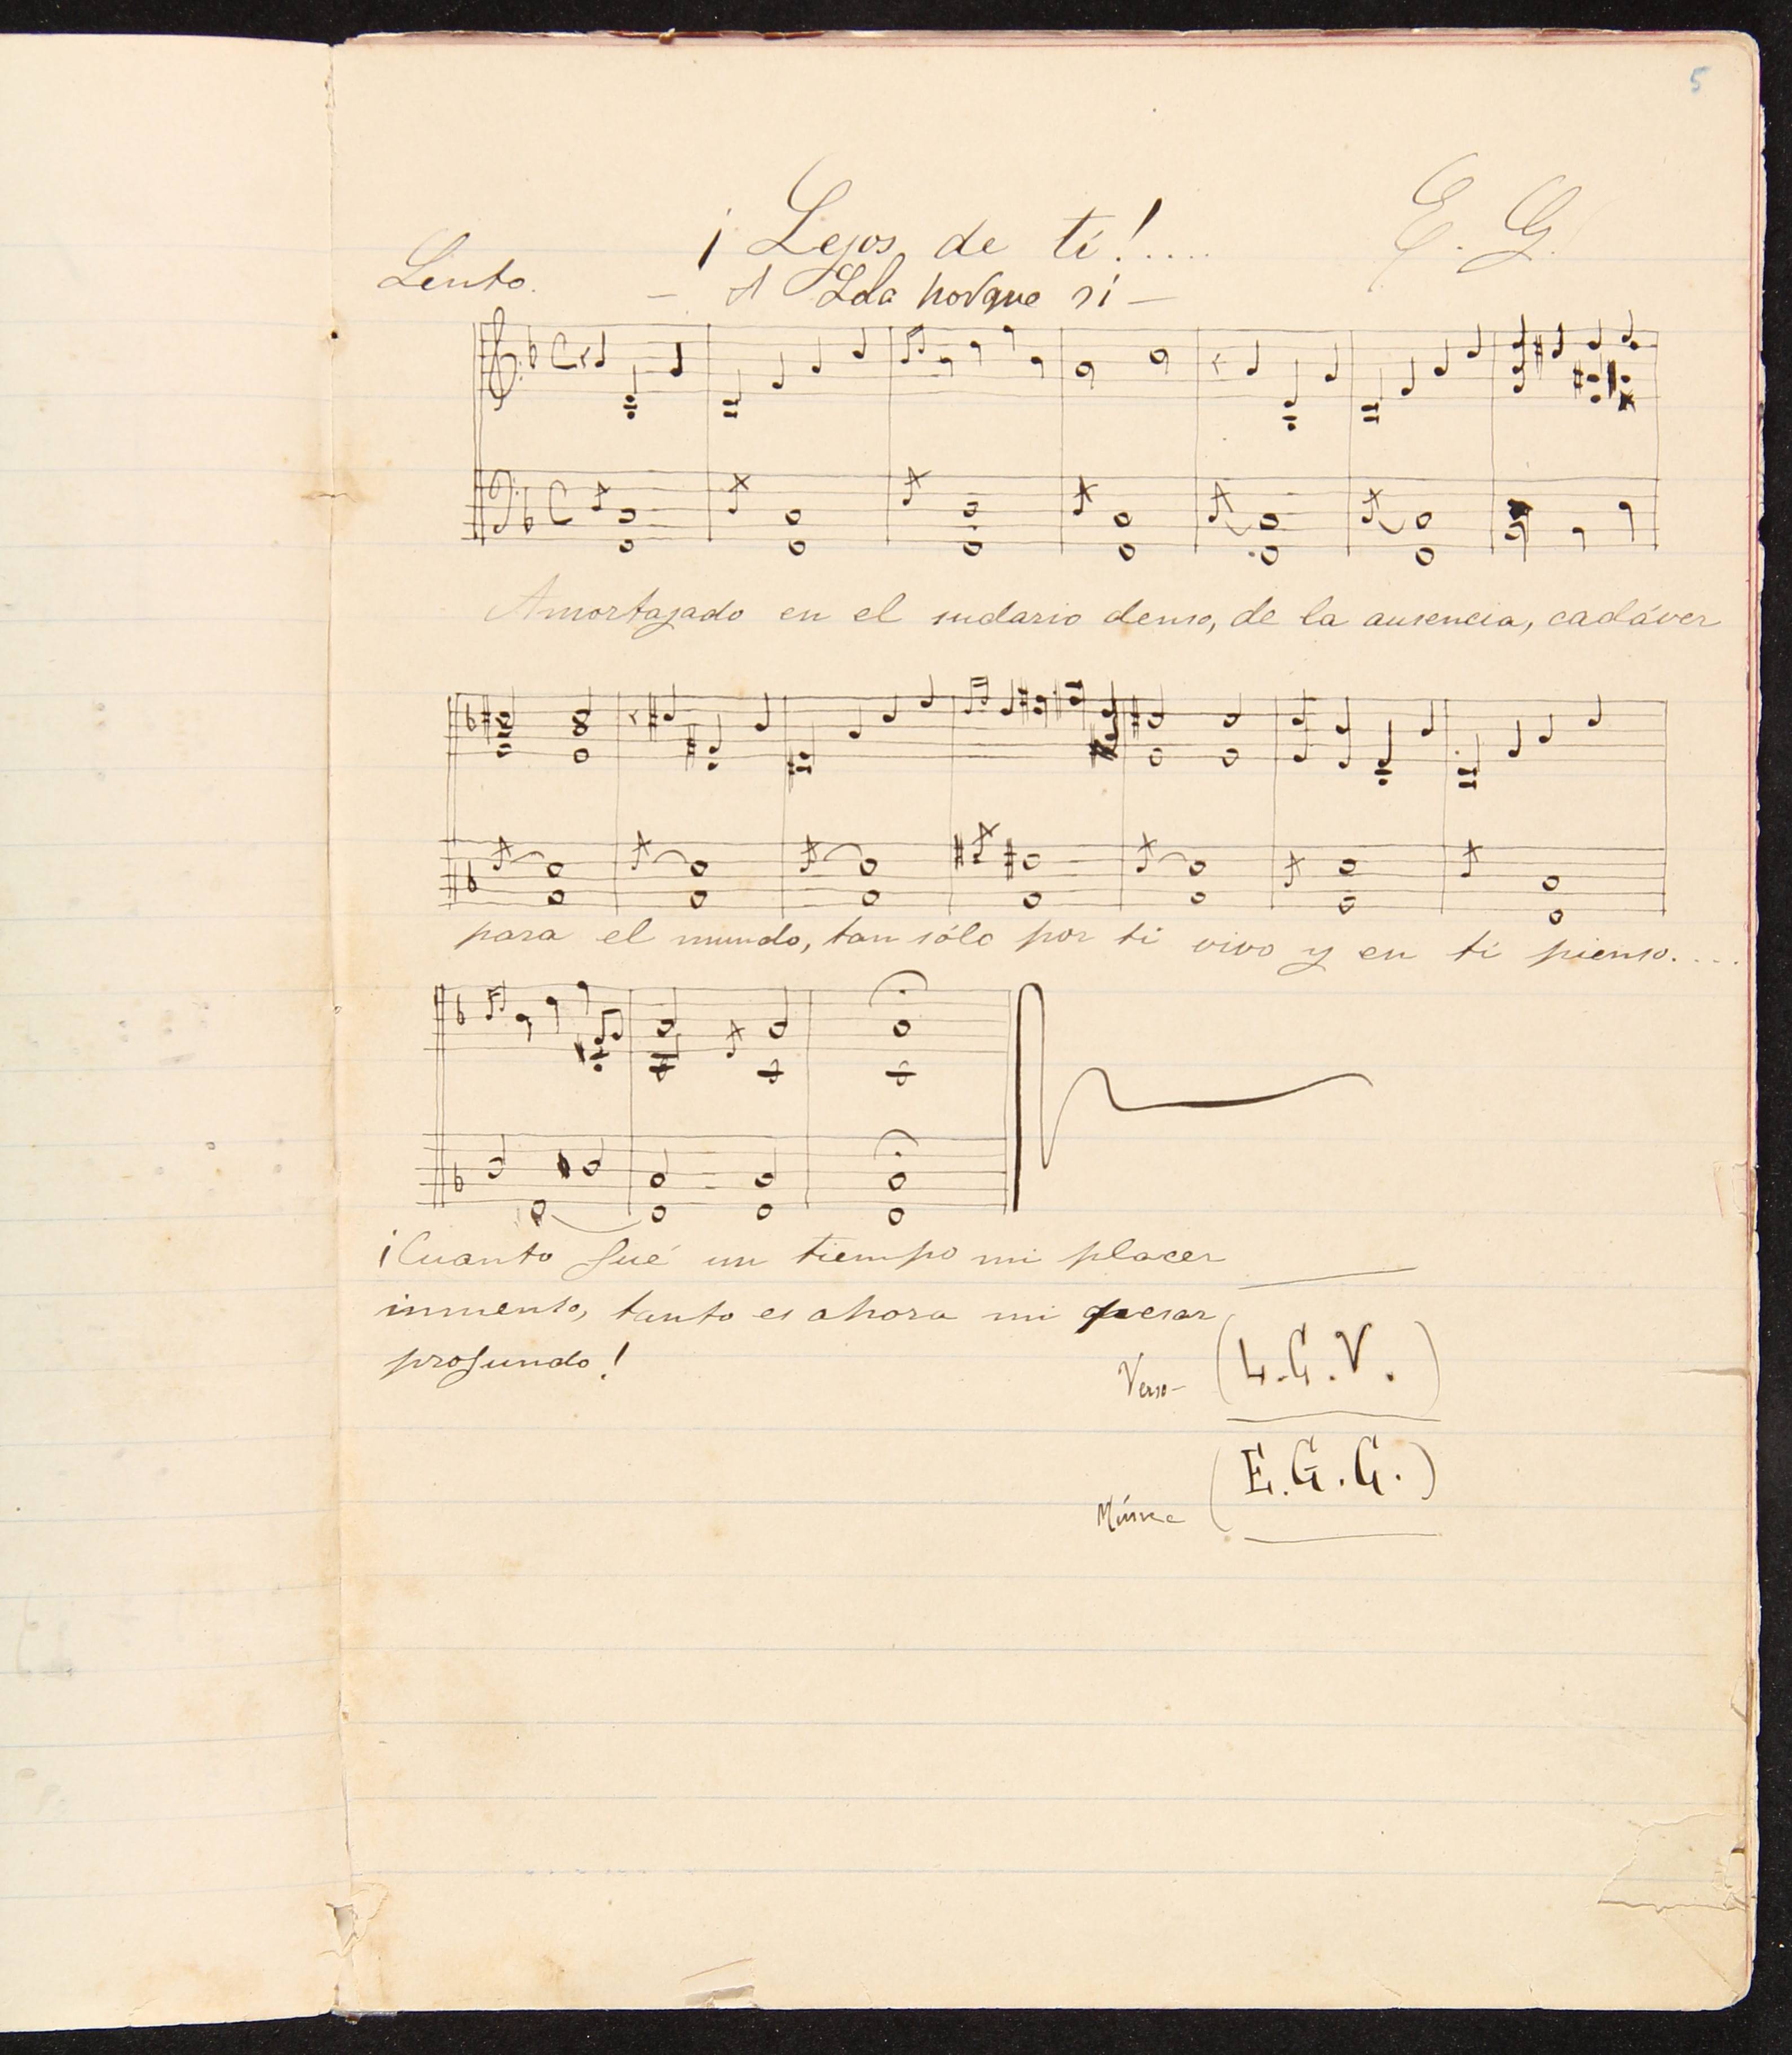 5
¡Lejos de ti!.....
E. G.
Lento.
— A Lola porque sí —
Amortajado en el sudario denso, de la ausencia, cadáver
para el mundo, tan sólo por ti vivo y en ti pienso....
¡Cuanto fué un tiempo mi placer
inmenso, tanto es ahora mi pesar
profundo!
Verso - (L.G.V.)
Música (E.G.G.)